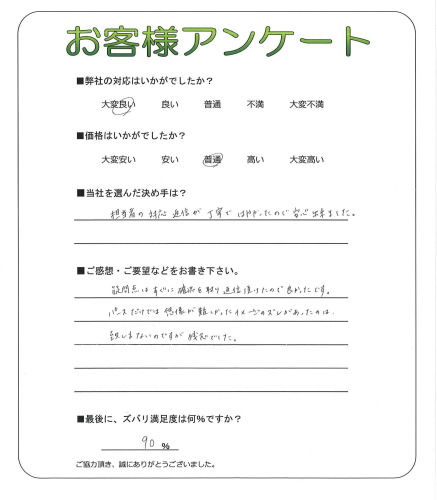 お客様アンケート
■弊社の対応はいかがでしたか？
大変良い 良い 普通 不満 大変不満
■価格はいかがでしたか？
大変安い 安い 普通 高い 大変高い
■当社を選んだ決め手は？
担当者の対応 返信が 丁寧で はやかったので 安心出来ました。
■ご感想・ご要望などをお書き下さい。
疑問点はすぐに確認を取り返信頂けたので良かったです。
パースだけでは想像が難しかったイメージのズレがあったのは、
致しまないのですが残念でした。
■最後に、ズバリ満足度は何％ですか？
90 ％
ご協力頂き、誠にありがとうございました。